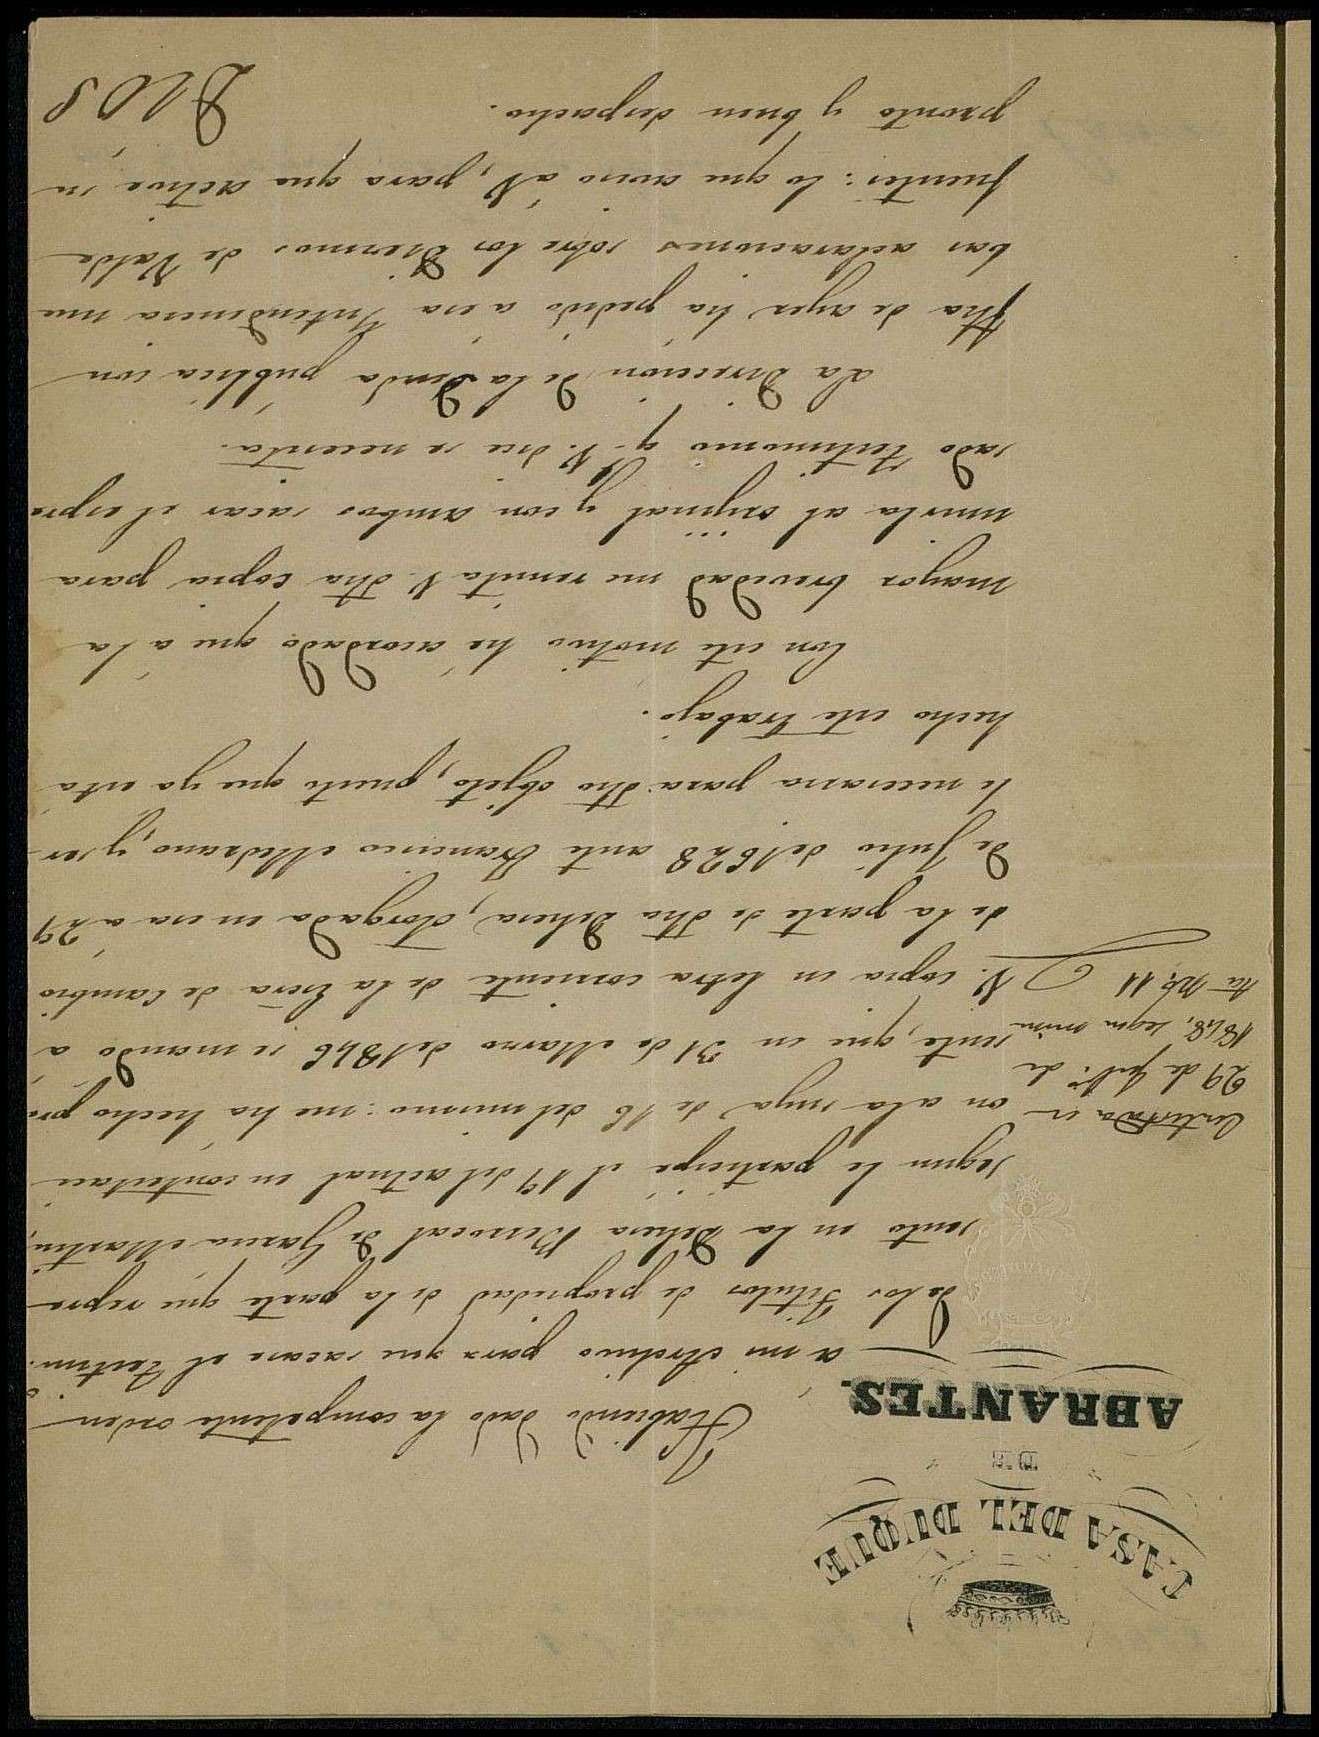 CASA DEL DUQUE
DE
ABRANTES.
Habiendo dado la competente orden
a mi Archivo para que sacara el Testim.º
de los Titulos de propiedad de la parte que repre-
sento en la Dehesa Berrocal de Garcia Martin,
segun le participé el 19 del actual en contestaci
on a la suya de 16 del mismo: me ha hecho pre
sente, que en 31 de Marzo de 1846 se mandó á
V. copia en letra corriente de la Escra de Cambio
de la parte de dha Dehesa, otorgada en esa a 29
de Julio de 1628 ante Francisco Medrano, y ser-
le necesaria para dho objeto, puesto que ya está
hecho este trabajo.
Con este motivo hé acordado que á la
mayor brevedad me remita V. dha copia para
unirla al original y con ambos sacar el espre
sado Testimonio q. V. dice se necesita.
La Direccion de la Deuda pública con
fha de ayer ha pedido a esa Intendencia nue
bas aclaraciones sobre los Diezmos de Valde
fuentes: lo que aviso a V, para que active su
pronto y buen despacho.
Dios
Contestada en
29 de Feb.º de
1848, segun minu
ta N.º 11